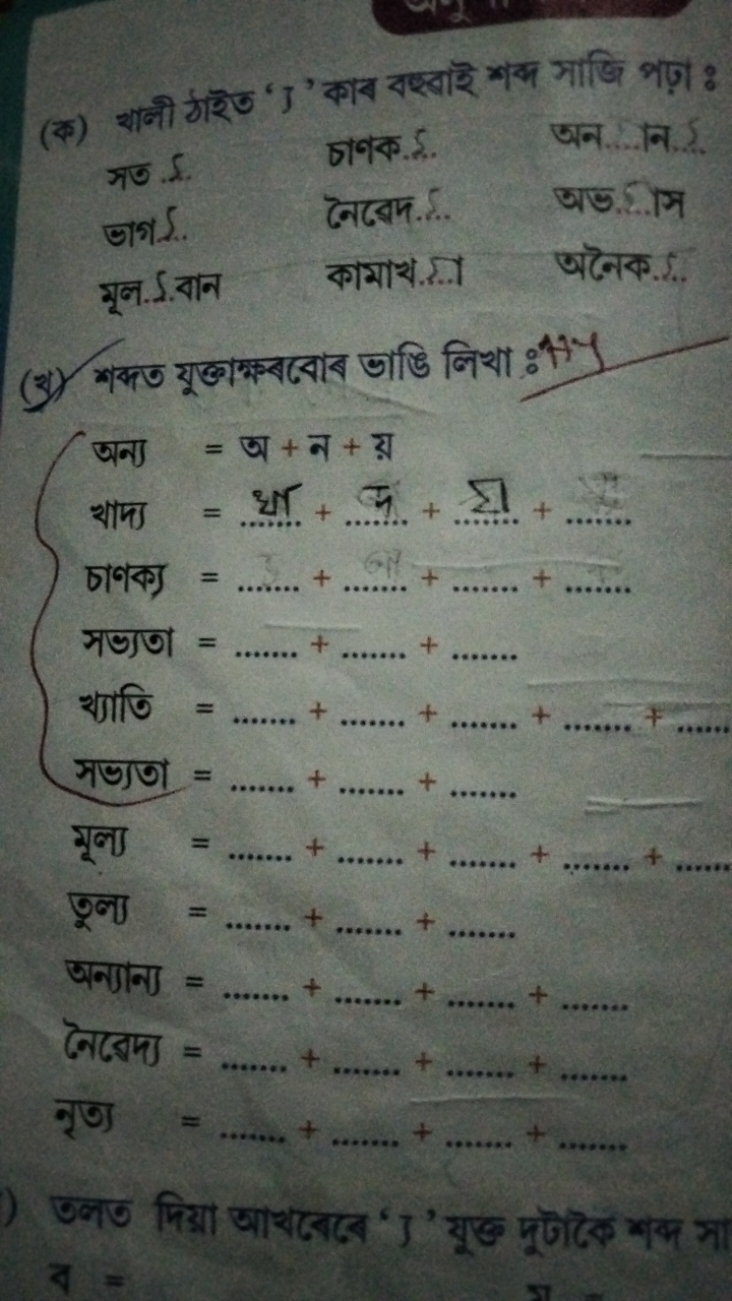 (ক) খালী ঠাইত ‘ ্য ’ কাৰ বহুৱাই শব্দ সাজি পঢ়া :
সত ..্য.. চাণক..্য.. অন....ান..্য..
ভাগ..্য.. নৈবেদ..্য.. অভ..্য..াস
মূল..্য..বান কামাখ..্য..া অনৈক..্য..
(খ) শব্দত যুক্তাক্ষৰবোৰ ভাঙি লিখা :
অন্য = অ + ন + য়
খাদ্য = খা + দ + য়া + .......
চাণক্য = ....... + ....... + ....... + .......
সভ্যতা = ....... + ....... + .......
খ্যাতি = ....... + ....... + ....... + ....... + ......
সভ্যতা = ....... + ....... + .......
মূল্য = ....... + ....... + ....... + ....... + ......
তুল্য = ....... + ....... + .......
অন্যান্য = ....... + ....... + ....... + .......
নৈবেদ্য = ....... + ....... + ....... + .......
নৃত্য = ....... + ....... + ....... + .......
) তলত দিয়া আখৰেৰে ‘ ্য ’ যুক্ত দুটাকৈ শব্দ সা
ব =